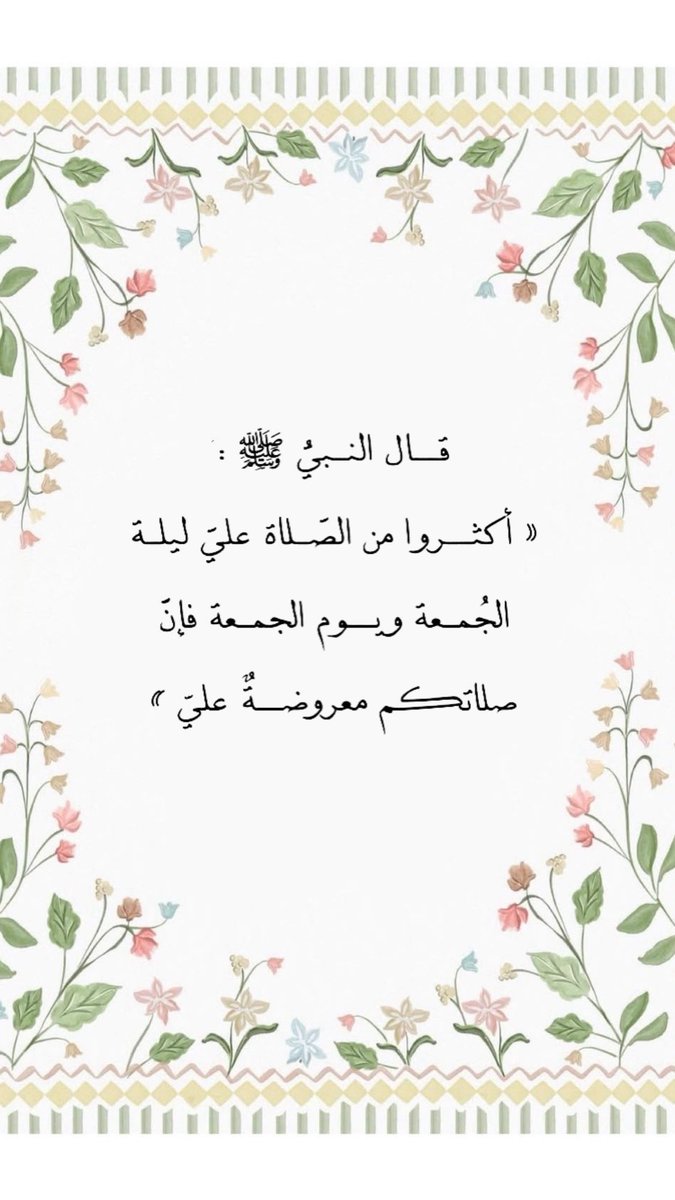 قـــال النــبيُ ﷺ :
« أكثـــروا من الصَـلاة عليَ ليلـة
الجُمـعة ويـــوم الجمـعة فإنَ
صلاتكـــم معروضـــةٌ عليَ »